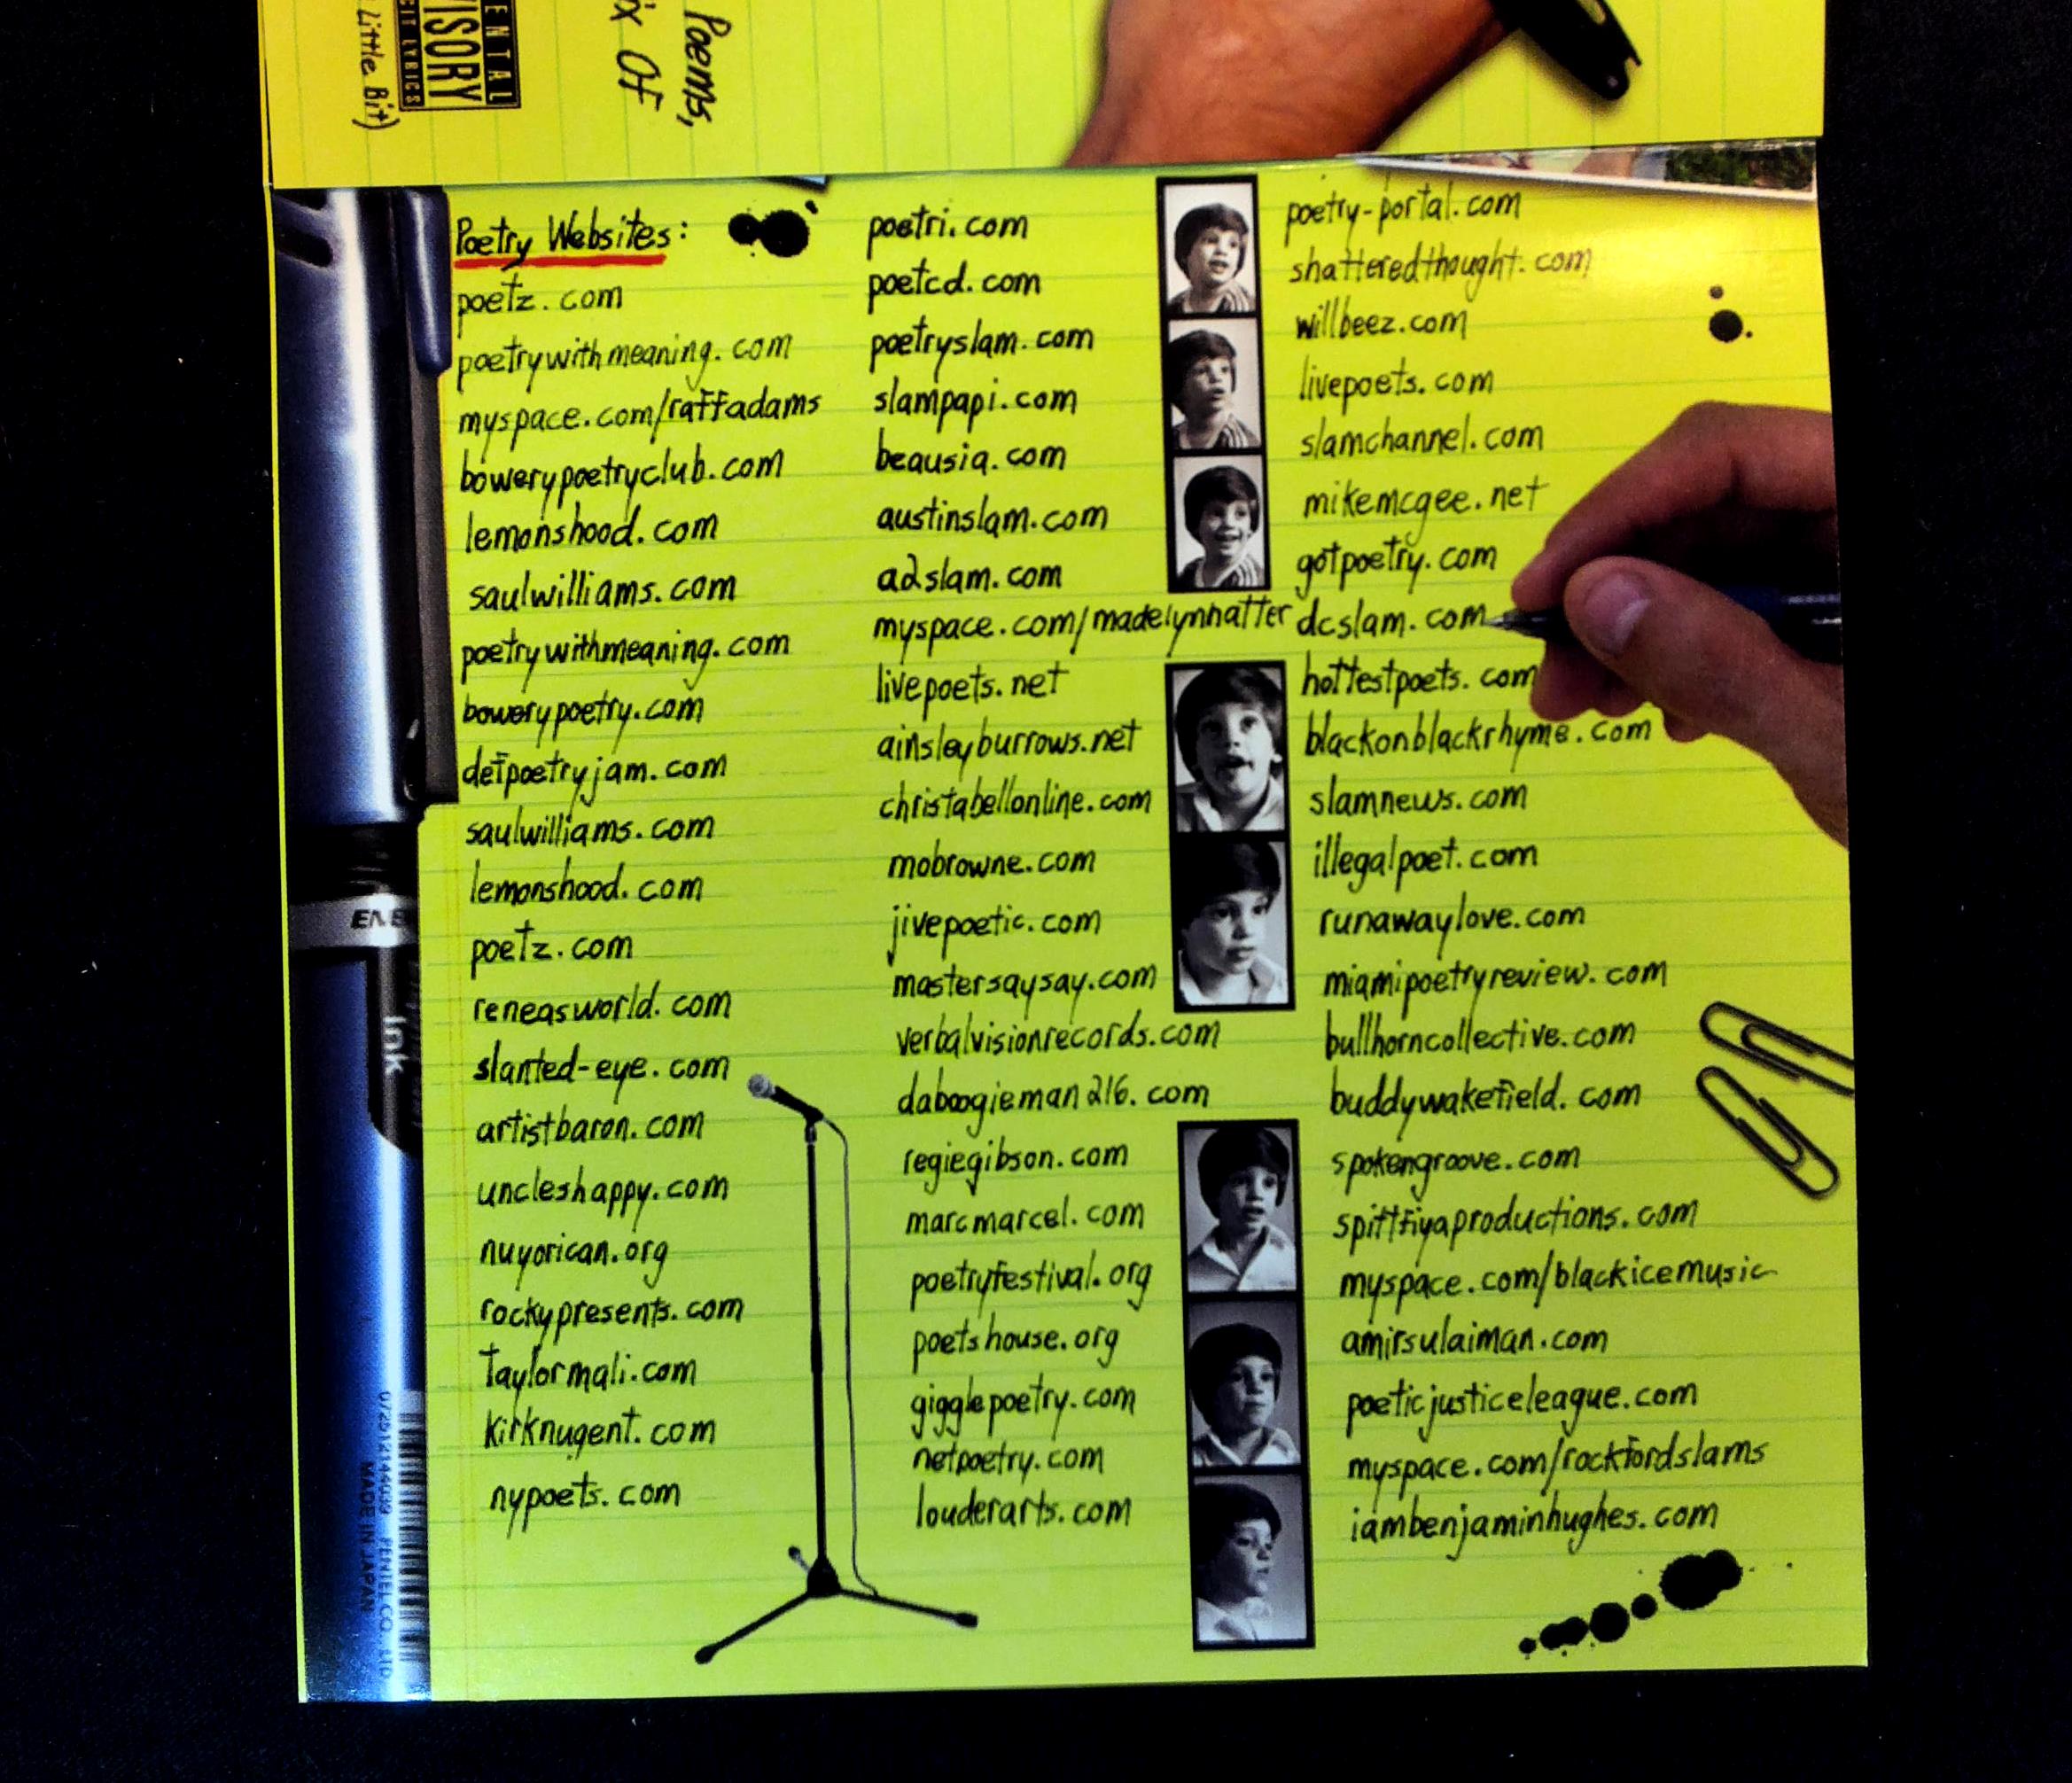 Poems,
ix Of
ENTAL
VISORY
CIT LYRICS
Little Bit)
Poetry Websites:
poetz.com
poetrywithmeaning.com
myspace.com/raffadams
bowerypoetryclub.com
lemonshood.com
saulwilliams.com
poetrywithmeaning.com
bowerypoetry.com
defpoetryjam.com
saulwilliams.com
lemonshood.com
poetz.com
reneasworld.com
slanted-eye.com
artistbaron.com
uncleshappy.com
nuyorican.org
rockypresents.com
taylormali.com
kirknugent.com
nypoets.com
poetri.com
poetcd.com
poetryslam.com
slampapi.com
beausia.com
austinslam.com
a2slam.com
myspace.com/madelynhatter
livepoets.net
ainsleyburrows.net
christabellonline.com
mobrowne.com
jivepoetic.com
mastersaysay.com
verbalvisionrecords.com
daboogieman216.com
regiegibson.com
marcmarcel.com
poetryfestival.org
poetshouse.org
gigglepoetry.com
netpoetry.com
louderarts.com
poetry-portal.com
shatteredthought.com
willbeez.com
livepoets.com
slamchannel.com
mikemcgee.net
gotpoetry.com
dcslam.com
hottestpoets.com
blackonblackrhyme.com
slamnews.com
illegalpoet.com
runawaylove.com
miamipoetryreview.com
bullhorncollective.com
buddywakefield.com
spokengroove.com
spittfiyaproductions.com
myspace.com/blackicemusic
amirsulaiman.com
poeticjusticeleague.com
myspace.com/rockfordslams
iambenjaminhughes.com
Ink
PENTEL CO., LTD
MADE IN JAPAN